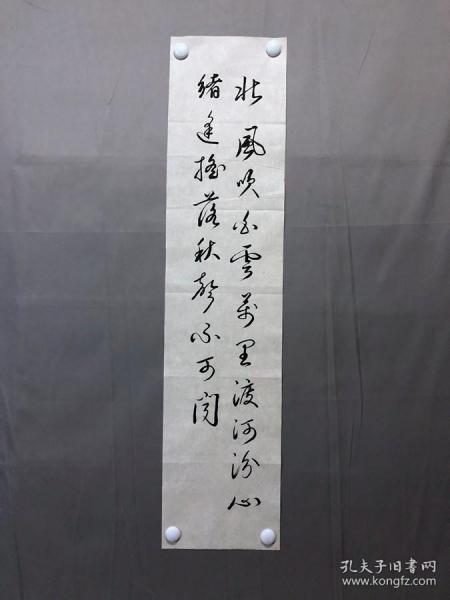 北風吹白雲萬里渡河汾心
緒逢摇落秋聲不可聞
孔夫子旧书网
www.kongfz.com